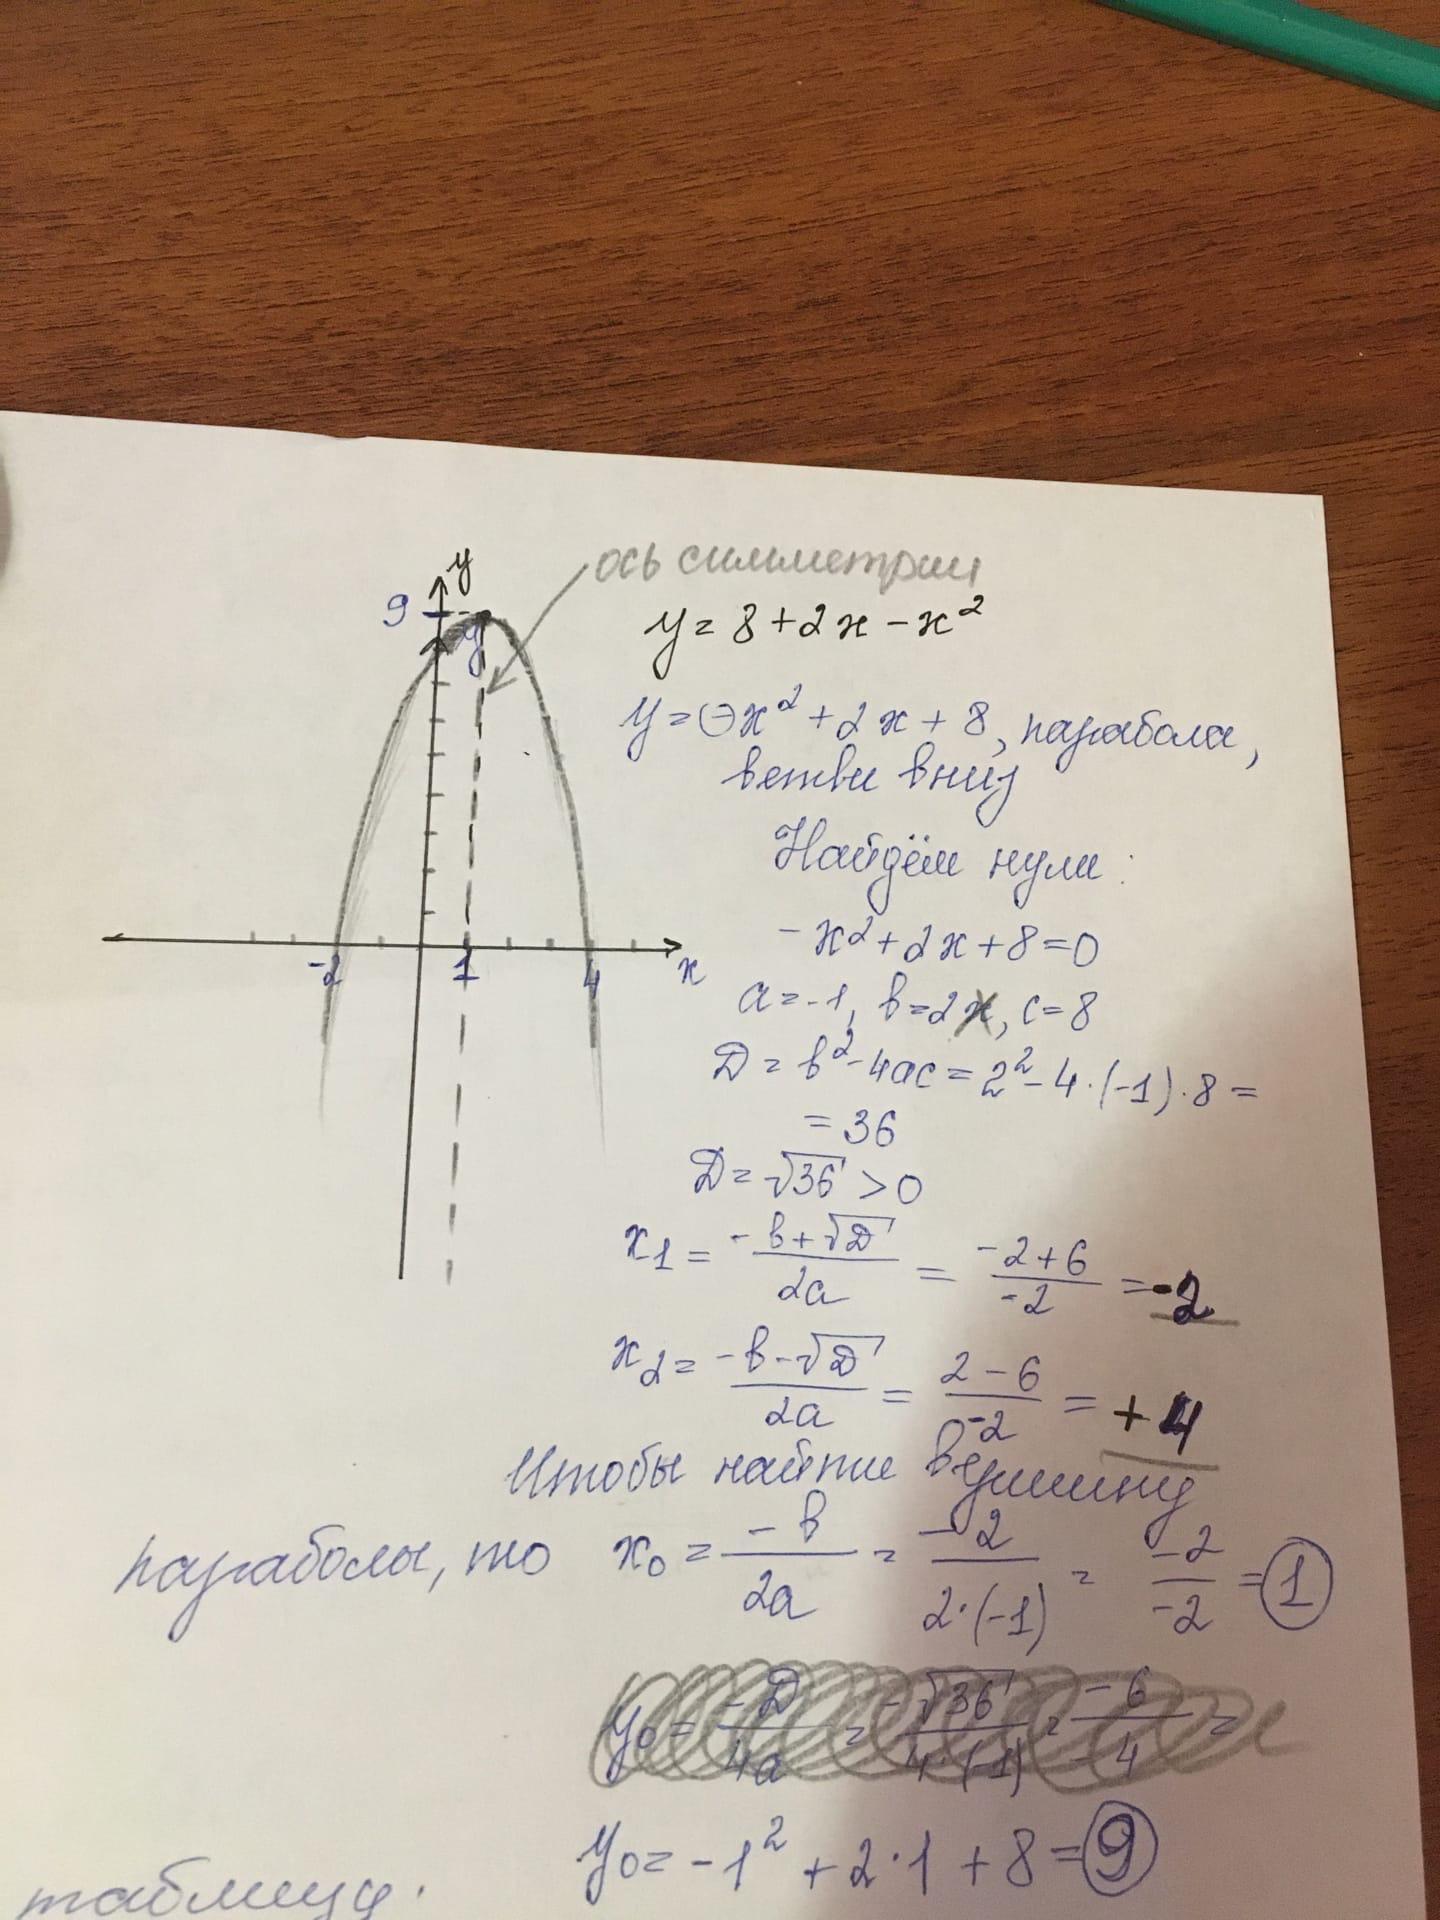 y
ось симметрии
9
y = 8 + 2x - x²
y
y = -x² + 2x + 8, парабола,
ветви вниз
Найдём нули:
-x² + 2x + 8 = 0
-2 1 4 x
a = -1, b = 2x, c = 8
D = b² - 4ac = 2² - 4·(-1)·8 =
= 36
D = √36 > 0
x₁ = (-b + √D)/2a = (-2 + 6)/-2 = -2
x₂ = (-b - √D)/2a = (2 - 6)/-2 = +4
Чтобы найти вершину
параболы, то x₀ = -b/2a = -2/(2·(-1)) = -2/-2 = 1
y₀ = -D/4a = -√36/(4·(-1)) = -6/-4 =
y₀ = -1² + 2·1 + 8 = 9
таблицу.